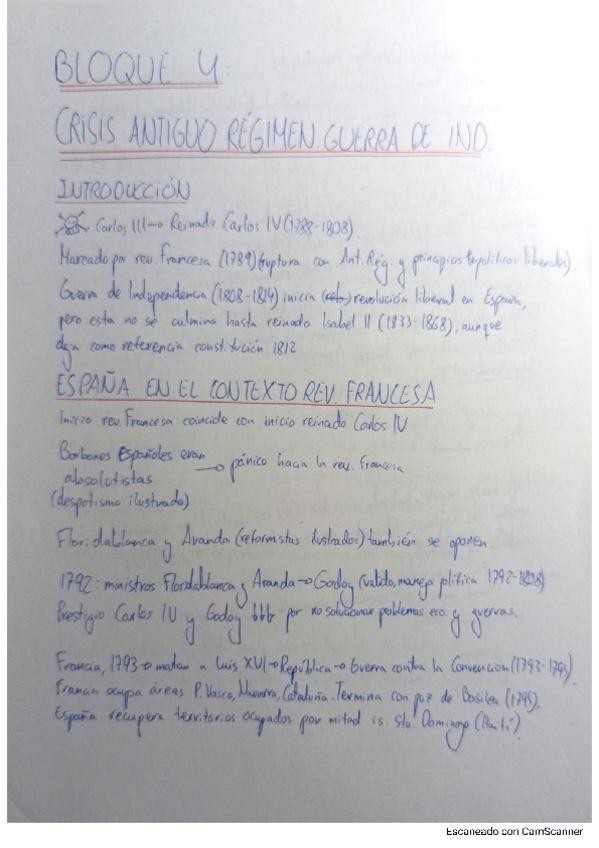 BLOQUE 4:
CRISIS ANTIGUO RÉGIMEN. GUERRA DE IND.
INTRODUCCIÓN
Carlos III → Reinado Carlos IV (1788-1808).
Marcado por rev. francesa (1789) (ruptura con Ant. Rég. y principios políticos liberales).
Guerra de Independencia (1808-1814) inicia revolución liberal en España,
pero esta no se culmina hasta reinado Isabel II (1833-1868), aunque
deja como referencia constitución 1812
ESPAÑA EN EL CONTEXTO REV. FRANCESA
Inicio rev. Francesa coincide con inicio reinado Carlos IV
Borbones Españoles eran → pánico hacia la rev. francesa
absolutistas
(despotismo ilustrado)
Floridablanca y Aranda (reformistas ilustrados) también se oponen
1792: ministros Floridablanca y Aranda → Godoy (valido, maneja política 1792-1808)
Prestigio Carlos IV y Godoy ↓↓↓ por no solucionar problemas eco. y guerras.
Francia, 1793 → matan a Luis XVI → República → Guerra contra la Convención (1793-1795).
Francia ocupa áreas P. Vasco, Navarra, Cataluña. Termina con paz de Basilea (1795).
España recupera territorios ocupados por mitad is. Sto. Domingo (Haití).
Escaneado con CamScanner